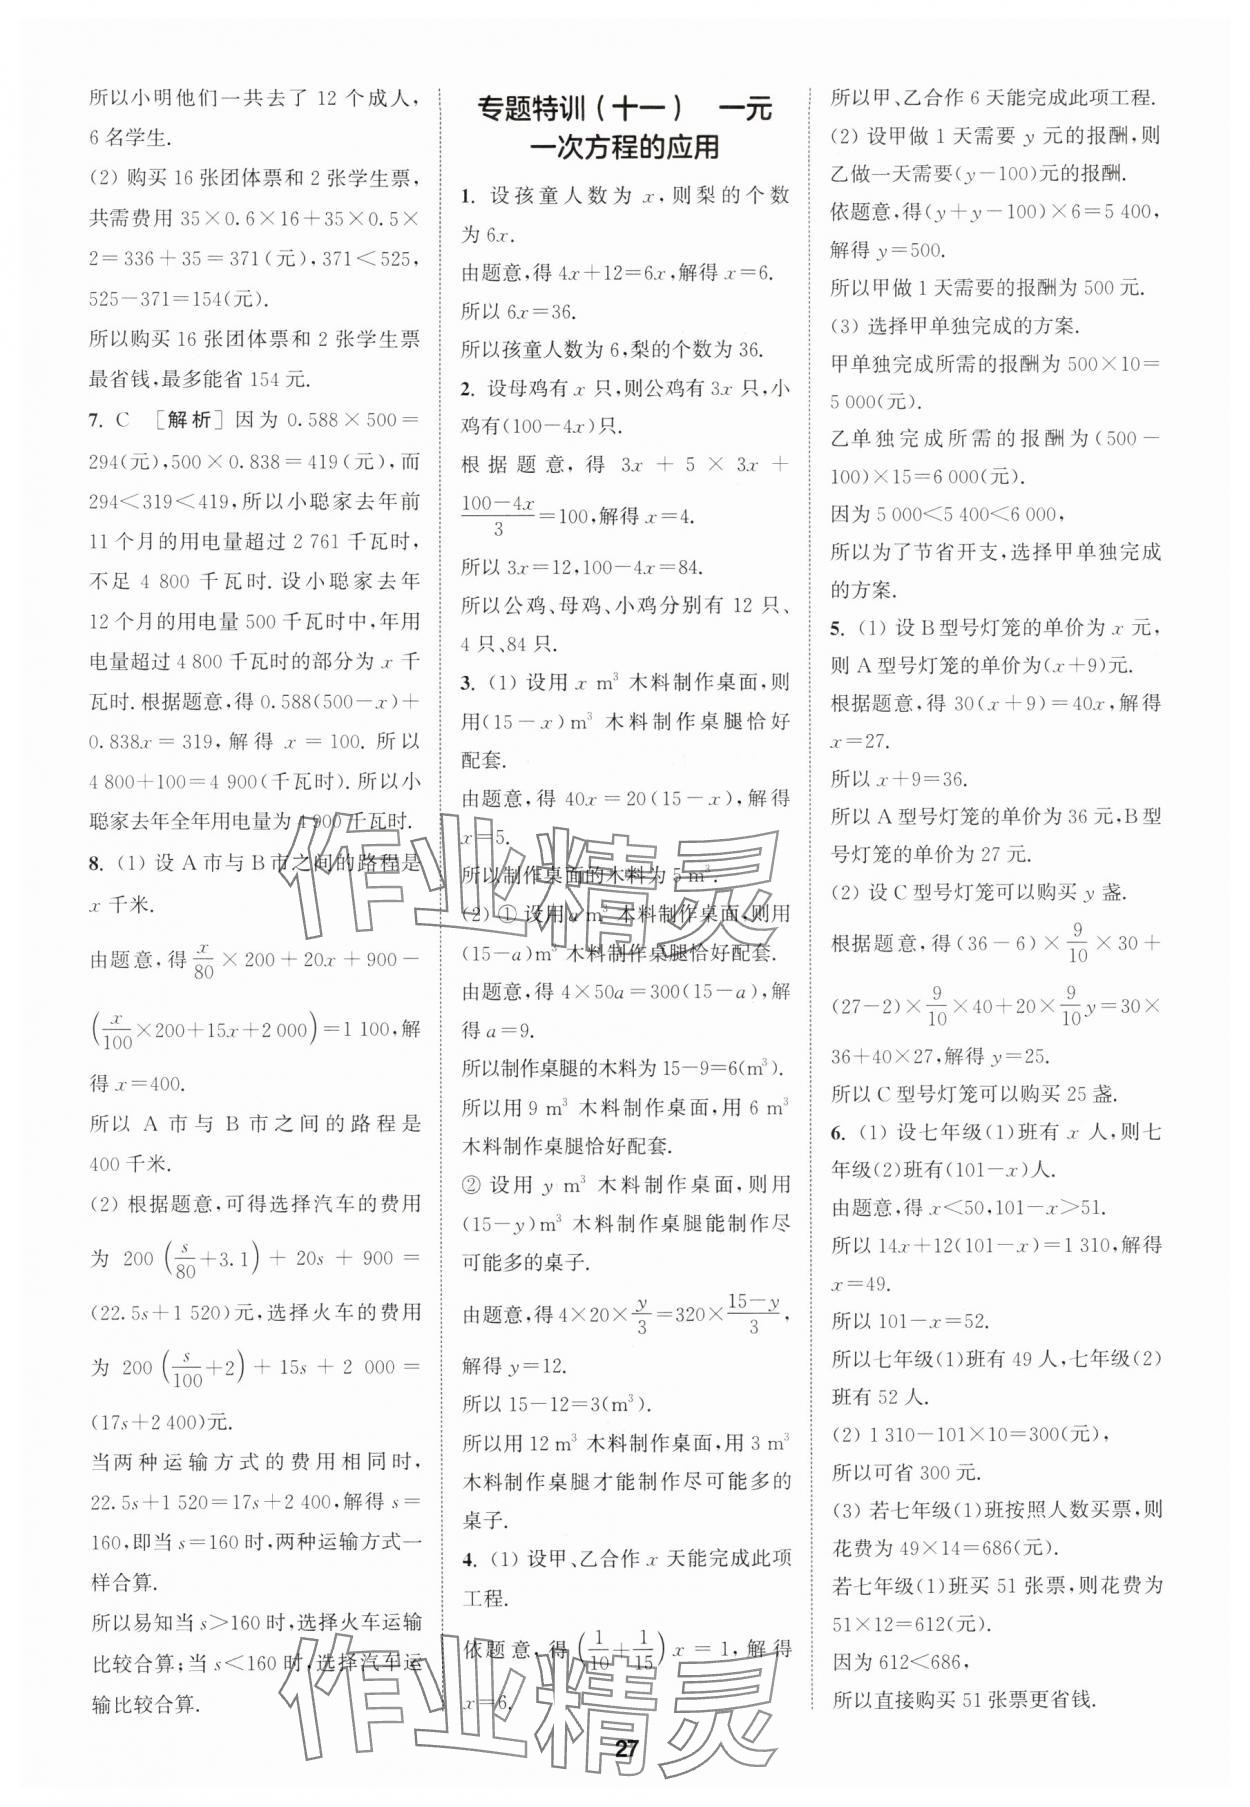 所以小明他们一共去了 12 个成人,
6 名学生.
(2) 购买 16 张团体票和 2 张学生票,
共需费用 35×0.6×16+35×0.5×
2=336+35=371(元),371<525,
525-371=154(元).
所以购买 16 张团体票和 2 张学生票
最省钱,最多能省 154 元.
7. C [解析]因为 0.588×500=
294(元),500×0.838=419(元),而
294<319<419,所以小聪家去年前
11 个月的用电量超过 2 761 千瓦时,
不足 4 800 千瓦时. 设小聪家去年
12 个月的用电量 500 千瓦时中,年用
电量超过 4 800 千瓦时的部分为 x 千
瓦时. 根据题意,得 0.588(500-x)+
0.838x=319,解得 x=100. 所以
4 800+100=4 900(千瓦时). 所以小
聪家去年全年用电量为 4 900 千瓦时.
8. (1) 设 A 市与 B 市之间的路程是
x 千米.
由题意,得 x/80 ×200+20x+900-
(x/100 ×200+15x+2 000)=1 100,解
得 x=400.
所以 A 市与 B 市之间的路程是
400 千米.
(2) 根据题意,可得选择汽车的费用
为 200 (s/80 +3.1) + 20s + 900 =
(22.5s+1 520)元,选择火车的费用
为 200 (s/100 +2) + 15s + 2 000 =
(17s+2 400)元.
当两种运输方式的费用相同时,
22.5s+1 520=17s+2 400,解得 s=
160,即当 s=160 时,两种运输方式一
样合算.
所以易知当 s>160 时,选择火车运输
比较合算;当 s<160 时,选择汽车运
输比较合算.
专题特训(十一) 一元
一次方程的应用
1. 设孩童人数为 x,则梨的个数
为 6x.
由题意,得 4x+12=6x,解得 x=6.
所以 6x=36.
所以孩童人数为 6,梨的个数为 36.
2. 设母鸡有 x 只,则公鸡有 3x 只,小
鸡有(100-4x)只.
根据题意,得 3x + 5 × 3x +
(100-4x)/3 =100,解得 x=4.
所以 3x=12,100-4x=84.
所以公鸡、母鸡、小鸡分别有 12 只、
4 只、84 只.
3. (1) 设用 x m³ 木料制作桌面,则
用(15-x)m³ 木料制作桌腿恰好
配套.
由题意,得 40x=20(15-x),解得
x=5.
所以制作桌面的木料为 5 m³.
(2) ① 设用 a m³ 木料制作桌面,则用
(15-a)m³ 木料制作桌腿恰好配套.
由题意,得 4×50a=300(15-a),解
得 a=9.
所以制作桌腿的木料为 15-9=6(m³).
所以用 9 m³ 木料制作桌面,用 6 m³
木料制作桌腿恰好配套.
② 设用 y m³ 木料制作桌面,则用
(15-y)m³ 木料制作桌腿能制作尽
可能多的桌子.
由题意,得 4×20× y/3 =320× (15-y)/3,
解得 y=12.
所以 15-12=3(m³).
所以用 12 m³ 木料制作桌面,用 3 m³
木料制作桌腿才能制作尽可能多的
桌子.
4. (1) 设甲、乙合作 x 天能完成此项
工程.
依题意,得 (1/10 + 1/15) x = 1,解得
x=6.
所以甲、乙合作 6 天能完成此项工程.
(2) 设甲做 1 天需要 y 元的报酬,则
乙做一天需要(y-100)元的报酬.
依题意,得(y+y-100)×6=5 400,
解得 y=500.
所以甲做 1 天需要的报酬为 500 元.
(3) 选择甲单独完成的方案.
甲单独完成所需的报酬为 500×10=
5 000(元).
乙单独完成所需的报酬为(500-
100)×15=6 000(元).
因为 5 000<5 400<6 000,
所以为了节省开支,选择甲单独完成
的方案.
5. (1) 设 B 型号灯笼的单价为 x 元,
则 A 型号灯笼的单价为(x+9)元.
根据题意,得 30(x+9)=40x,解得
x=27.
所以 x+9=36.
所以 A 型号灯笼的单价为 36 元,B 型
号灯笼的单价为 27 元.
(2) 设 C 型号灯笼可以购买 y 盏.
根据题意,得(36-6)× 9/10 ×30+
(27-2)× 9/10 ×40+20× 9/10 y=30×
36+40×27,解得 y=25.
所以 C 型号灯笼可以购买 25 盏.
6. (1) 设七年级(1)班有 x 人,则七
年级(2)班有(101-x)人.
由题意,得 x<50,101-x>51.
所以 14x+12(101-x)=1 310,解得
x=49.
所以 101-x=52.
所以七年级(1)班有 49 人,七年级(2)
班有 52 人.
(2) 1 310-101×10=300(元),
所以可省 300 元.
(3) 若七年级(1)班按照人数买票,则
花费为 49×14=686(元).
若七年级(1)班买 51 张票,则花费为
51×12=612(元).
因为 612<686,
所以直接购买 51 张票更省钱.
作业精灵
作业精灵
27